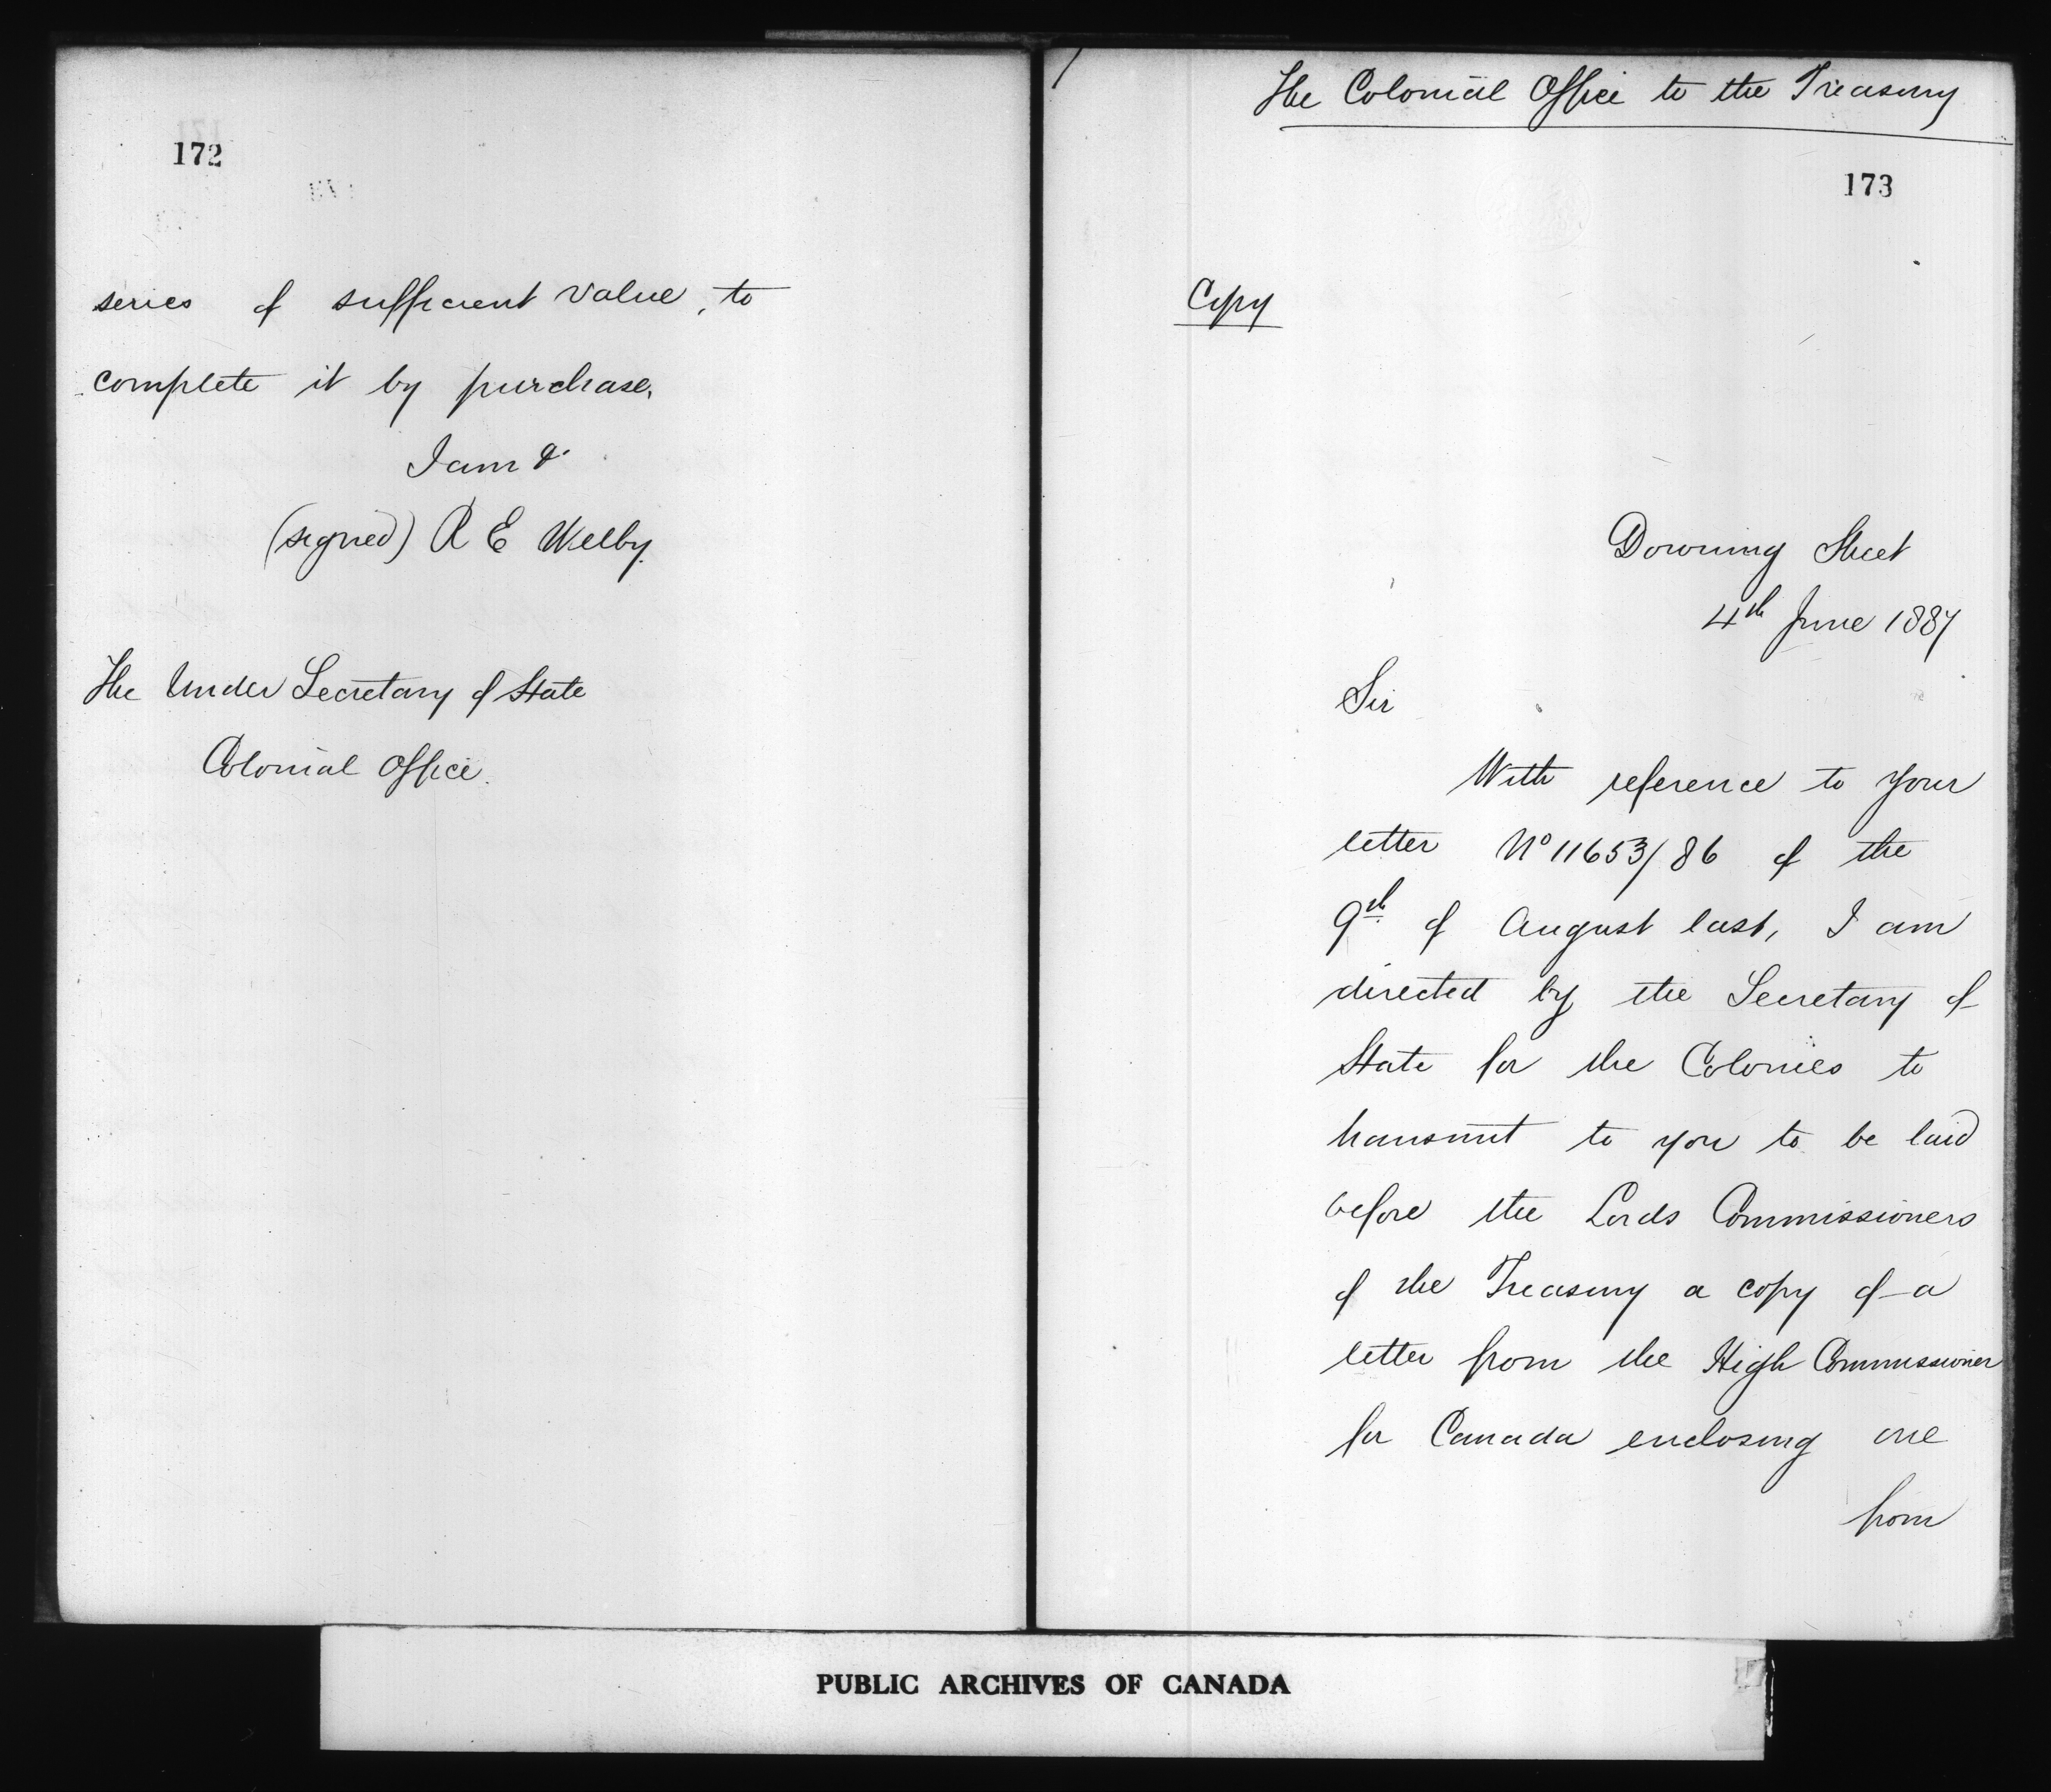 172
series of sufficient value, to
complete it by purchase.
I am &.
(signed) R E Welby.
The Under Secretary of State
Colonial Office.
The Colonial Office to the Treasury
173
Copy
Downing Street
4th June 1887
Sir
With reference to your
letter No 11653/86 of the
9th of August last, I am
directed by the Secretary of
State for the Colonies to
transmit to you to be laid
before the Lords Commissioners
of the Treasury a copy of a
letter from the High Commissioner
for Canada enclosing one
from
PUBLIC ARCHIVES OF CANADA